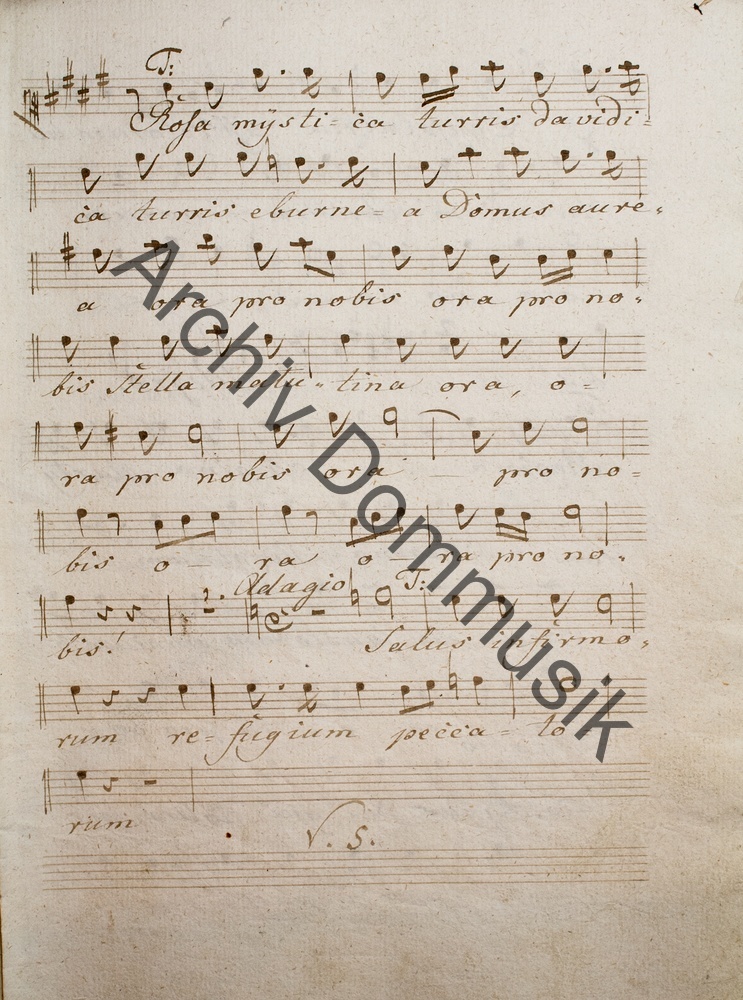 T:
Rosa mÿsti - ca turris davidi =
ca turris eburne = a Domus aure =
a ora pro nobis ora pro no =
bis Stella matu = tina ora, o =
ra pro nobis ora pro no =
bis o - ra o - ra pro no =
Adagio T:
bis! Salus infirmo =
rum re = fugium pecca = to
rum
V. S.
Archiv Dommusik